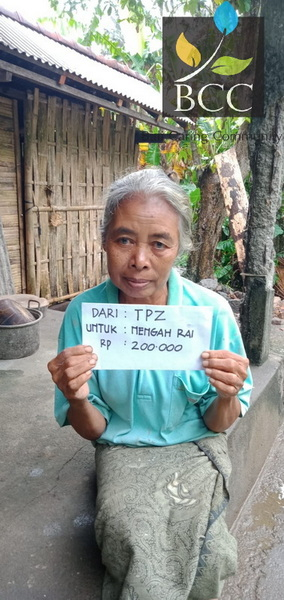 BCC
Caring Community
DARI : TPZ
UNTUK : MENGAH RAI
RP : 200.000